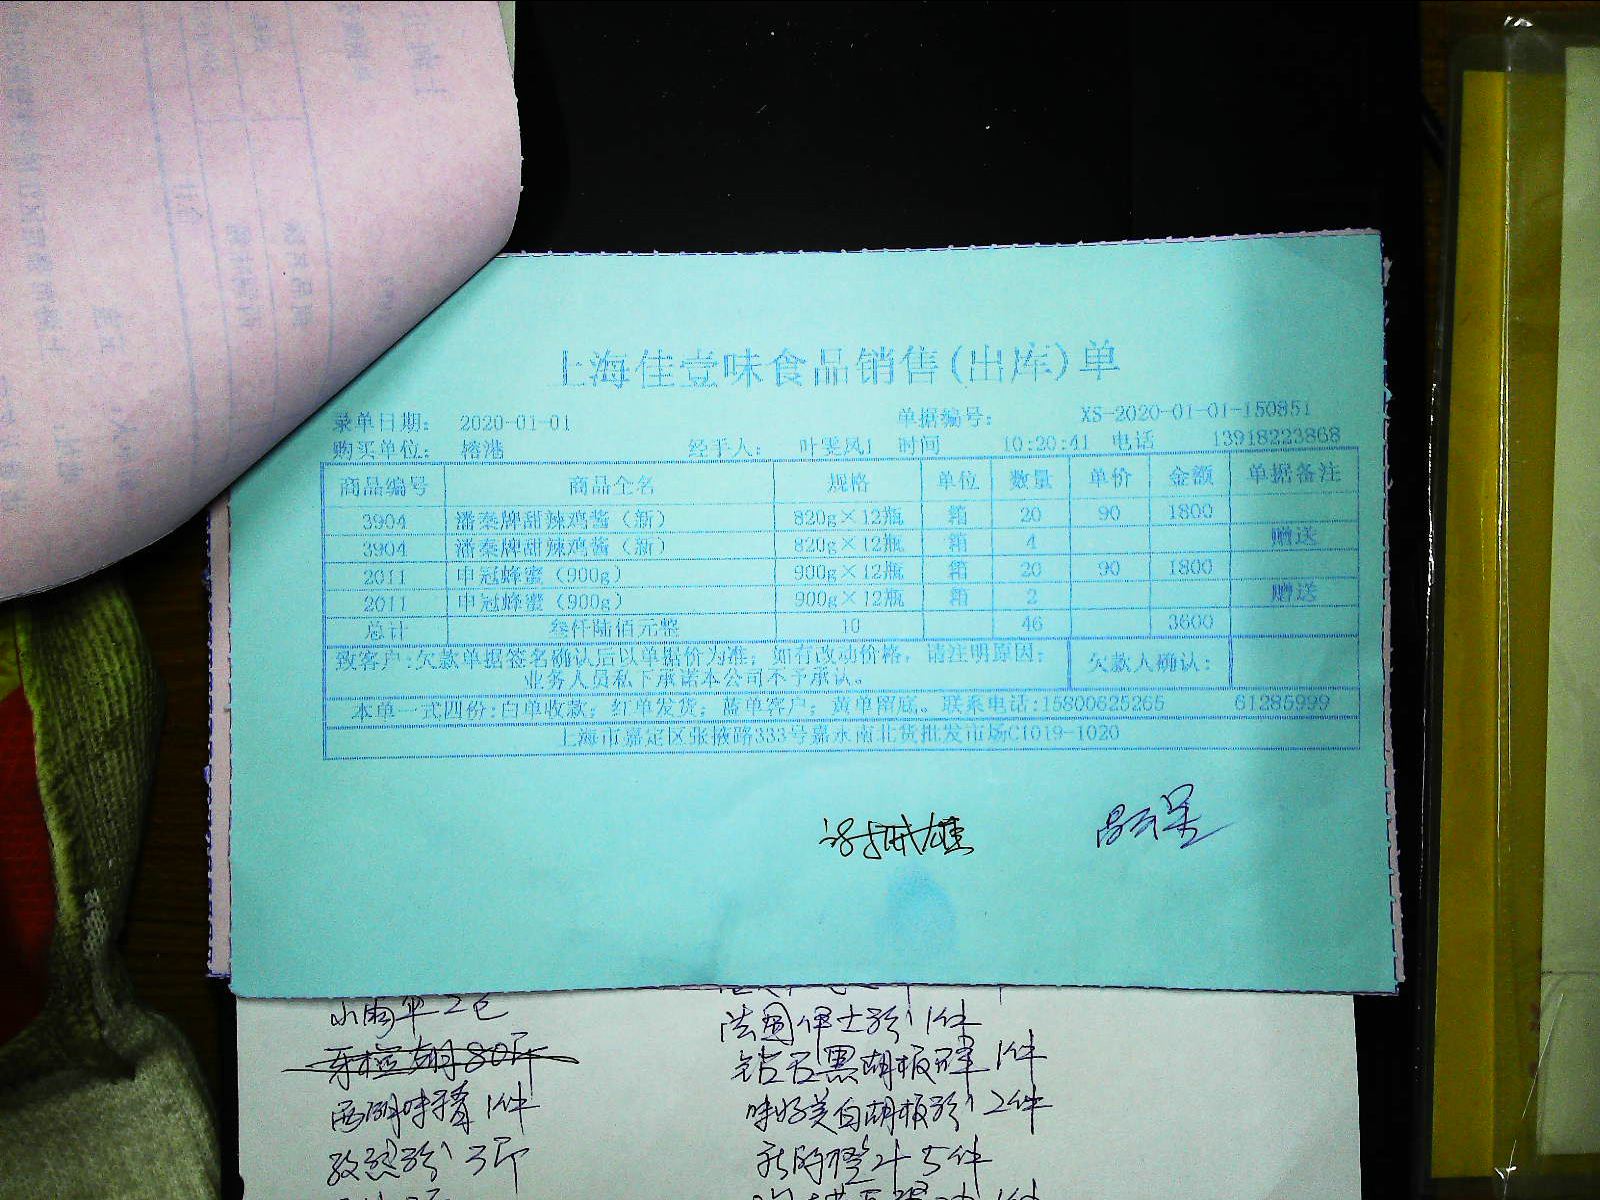 上海佳壹味食品销售(出库)单
录单日期: 2020-01-01 单据编号: XS-2020-01-01-150851
购买单位: 榕港 经手人: 叶雯凤1 时间 10:20:41 电话 13918223868
商品编号 商品全名 规格 单位 数量 单价 金额 单据备注
3904 潘泰牌甜辣鸡酱（新） 820g×12瓶 箱 20 90 1800
3904 潘泰牌甜辣鸡酱（新） 820g×12瓶 箱 4 赠送
2011 申冠蜂蜜（900g） 900g×12瓶 箱 20 90 1800
2011 申冠蜂蜜（900g） 900g×12瓶 箱 2 赠送
总计 叁仟陆佰元整 10 46 3600
致客户:欠款单据签名确认后以单据价为准，如有改动价格，请注明原因； 欠款人确认:
业务人员私下承诺本公司不予承认。
本单一式四份:白单收款；红单发货；蓝单客户；黄单留底。联系电话:15800625265 61285999
上海市嘉定区张掖路333号嘉永南北货批发市场C1019-1020
小雨伞2包
法国伊士粉1件
80斤
钻石黑胡椒碎1件
西湖味精1件
味好美白胡椒粉2件
孜然粉3斤
5件